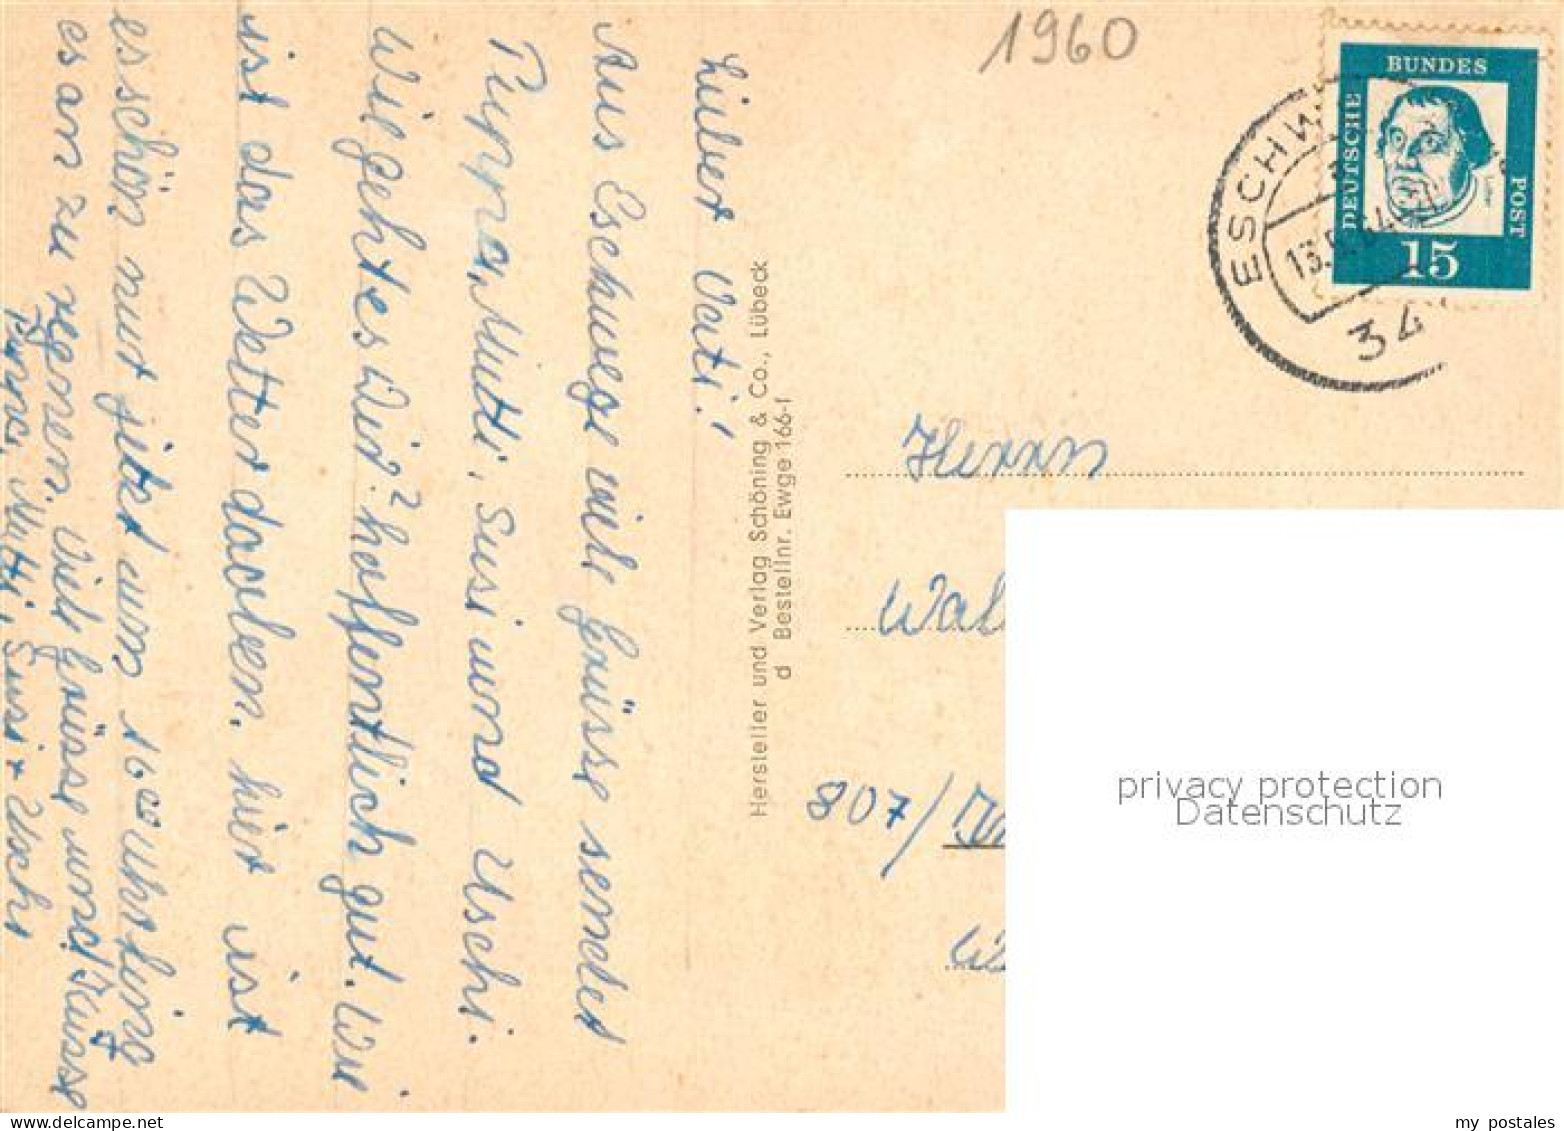 1960
DEUTSCHE
BUNDES
POST
15
ESCHW
13.
34
Lieber Vati!
Aus Eschwege viele Grüsse sendet
Puppa, Mutti, Susi und Uschi.
Wie geht es Dir? hoffentlich gut. Wie
ist das Wetter daoben. hier ist
es schön nur jetzt um 16⁰⁰ Uhr fing
es an zu regnen. Viele Grüsse und Küsse
Puppa, Mutti, Susi + Uschi
Hersteller und Verlag Schöning & Co., Lübeck
d Bestellnr. Ewge 166-1
Herrn
Wal
807/
privacy protection
Datenschutz
my postales